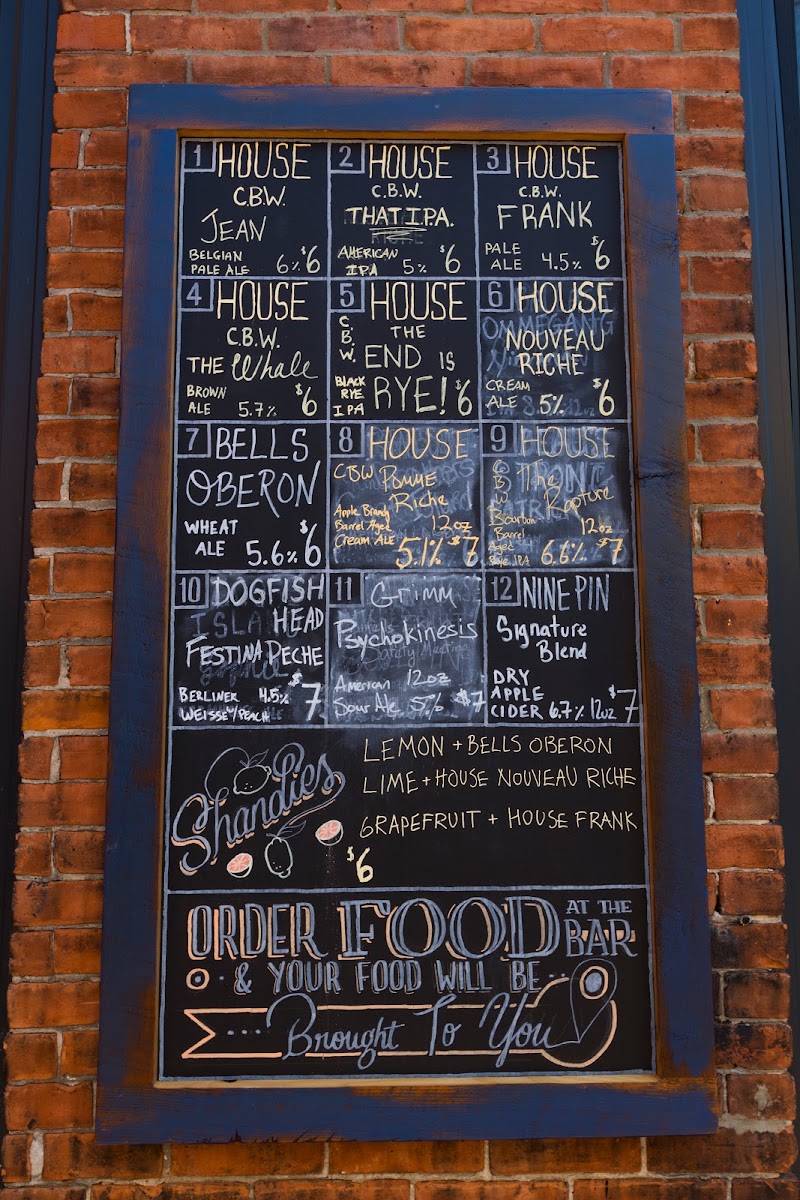 1 HOUSE
C.B.W.
JEAN
BELGIAN
PALE ALE 6% $6
2 HOUSE
C.B.W.
THAT I.P.A.
AMERICAN
IPA 5% $6
3 HOUSE
C.B.W.
FRANK
PALE
ALE 4.5% $6
4 HOUSE
C.B.W.
THE Whale
BROWN
ALE 5.7% $6
5 HOUSE
C.B.W. THE
END IS
RYE!
BLACK
RYE
IPA $6
6 HOUSE
OMMEGANG
NOUVEAU
RICHE
CREAM
ALE 5% $6
7 BELLS
OBERON
WHEAT
ALE 5.6% $6
8 HOUSE
CBW POMME
Riche
Apple Brandy
Barrel Aged 12oz
Cream ALE 5.1% $7
9 HOUSE
CBW The
Rapture
Bourbon
Barrel 12oz
Aged
Rye IPA 6.6% $7
10 DOGFISH
HEAD
FESTINA PECHE
BERLINER 4.5%
WEISSE w/ PEACH $7
11 Grimm
Psychokinesis
Safety Meeting
American 12oz
Sour Ale 5% $7
12 NINE PIN
Signature
Blend
DRY
APPLE
CIDER 6.7% 12oz $7
Shandies
LEMON + BELLS OBERON
LIME + HOUSE NOUVEAU RICHE
GRAPEFRUIT + HOUSE FRANK
$6
ORDER FOOD AT THE BAR
& YOUR FOOD WILL BE
Brought To You